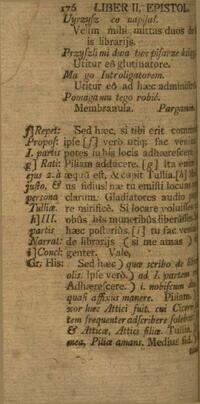 176 LIBER II. EPISTOL.
Uyrzysz co napisał.
Velim mihi mittas duos de
is librarijs.
Przyszli mi dwu twe pisarze
Utitur eô glutinatore.
Ma go Introligatorem.
Utitur eô ad hæc administ
Pomagamu tego robić.
Membranula. Pargamin.
f] Repet: Sed hæc, si tibi erit comm
Propos: ipse [f] verò utiq; fac venia
I. partis potes in his locis adhærescere
g] Rati Piliam adducere. [g] ita enim
ejus 2. à æquũ est, & capit Tullia. [h]
justo, & us fidius! næ tu emisti locum
persona clarum. Gladiatores audio p
Tulliæ. re mirificè. Si locare voluisses
h] III. obus his muneribus liberâsses
partis hæc posteriùs. [i] tu fac venias
Narrat: de librarijs ( si me amas )
i] Concl: genter. Vale,
Gr. His: Sed hæc ) quæ scribo de
olis. Ipse verò.) ad I. partem
Adhærescere. ) i. nobiscum
quasi affixus manere. Piliam.
xor hæc Attici fuit, cui Cicero
tem frequenter adscribere solebat
& Atticæ, Attici filiæ. Tullia.
mea, Piliæ amans. Medius fid.